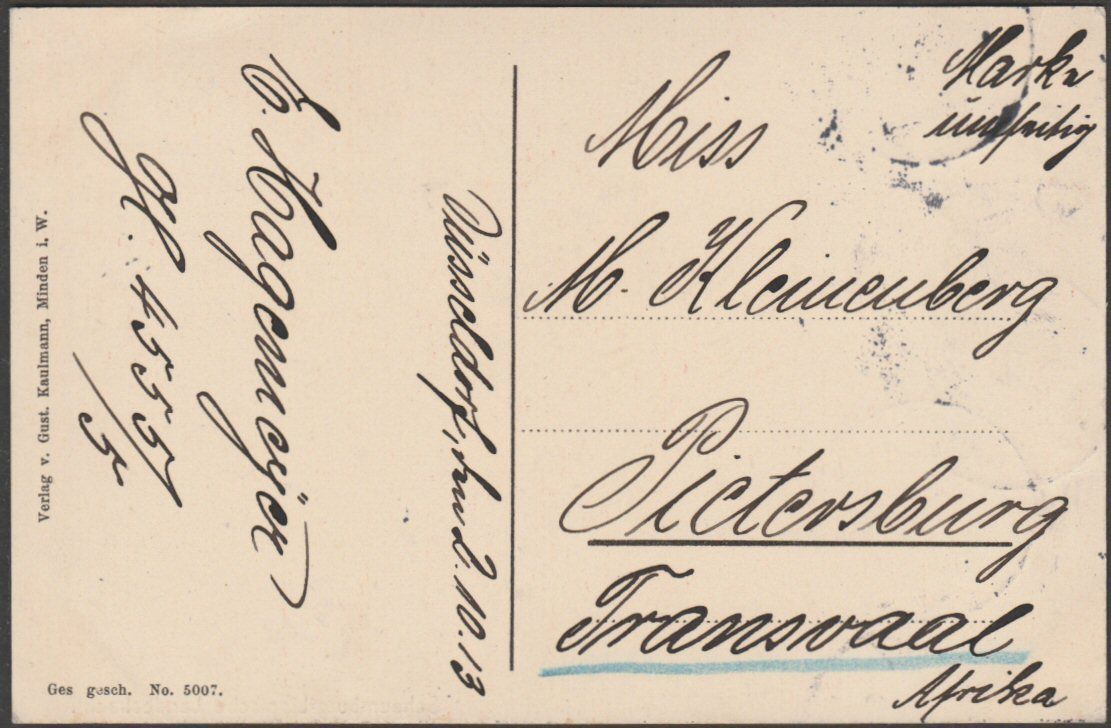 Marke
umseitig
Miss
M. Kleinenberg
Pietersburg
Transvaal
Afrika
Düsseldorf, den 2. 10. 13
E. Hagemeyer
4555/5
Verlag v. Gust. Kaulmann, Minden i. W.
Ges gesch. No. 5007.